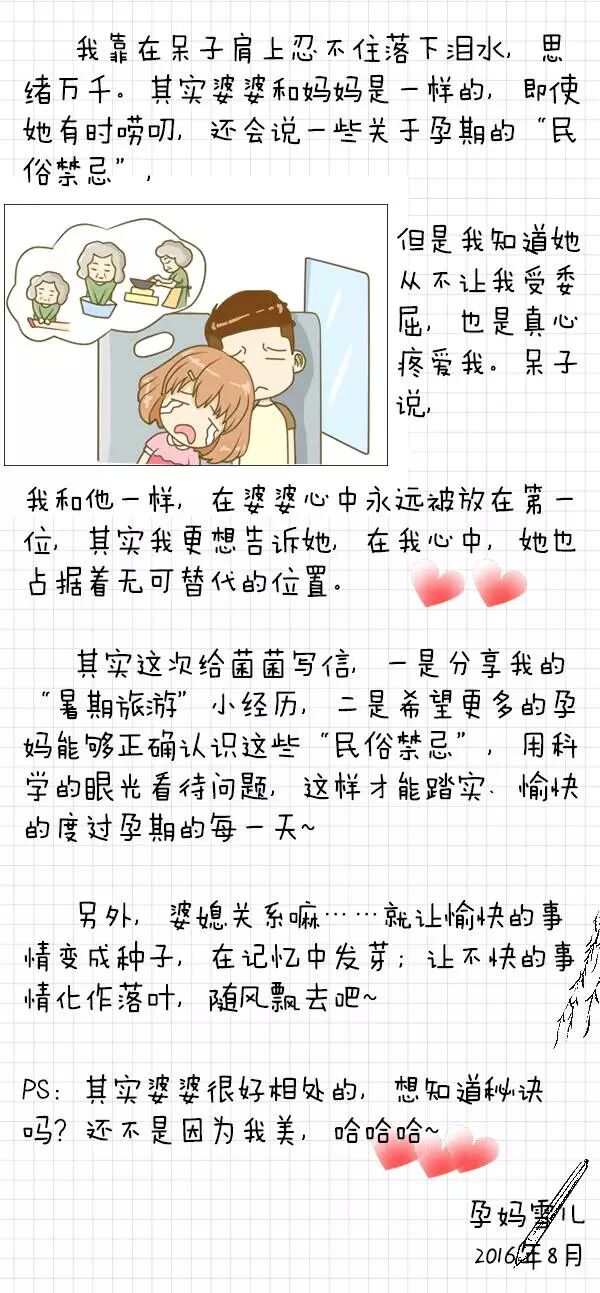 我靠在呆子肩上忍不住落下泪水，思
绪万千。其实婆婆和妈妈是一样的，即使
她有时唠叨，还会说一些关于孕期的“民
俗禁忌”，
但是我知道她
从不让我受委
屈，也是真心
疼爱我。呆子
说，
我和他一样，在婆婆心中永远被放在第一
位，其实我更想告诉她，在我心中，她也
占据着无可替代的位置。
其实这次给菌菌写信，一是分享我的
“暑期旅游”小经历，二是希望更多的孕
妈能够正确认识这些“民俗禁忌”，用科
学的眼光看待问题，这样才能踏实、愉快
的度过孕期的每一天~
另外，婆媳关系嘛……就让愉快的事
情变成种子，在记忆中发芽；让不快的事
情化作落叶，随风飘去吧~
PS：其实婆婆很好相处的，想知道秘诀
吗？还不是因为我美，哈哈哈~
孕妈雪儿
2016年8月